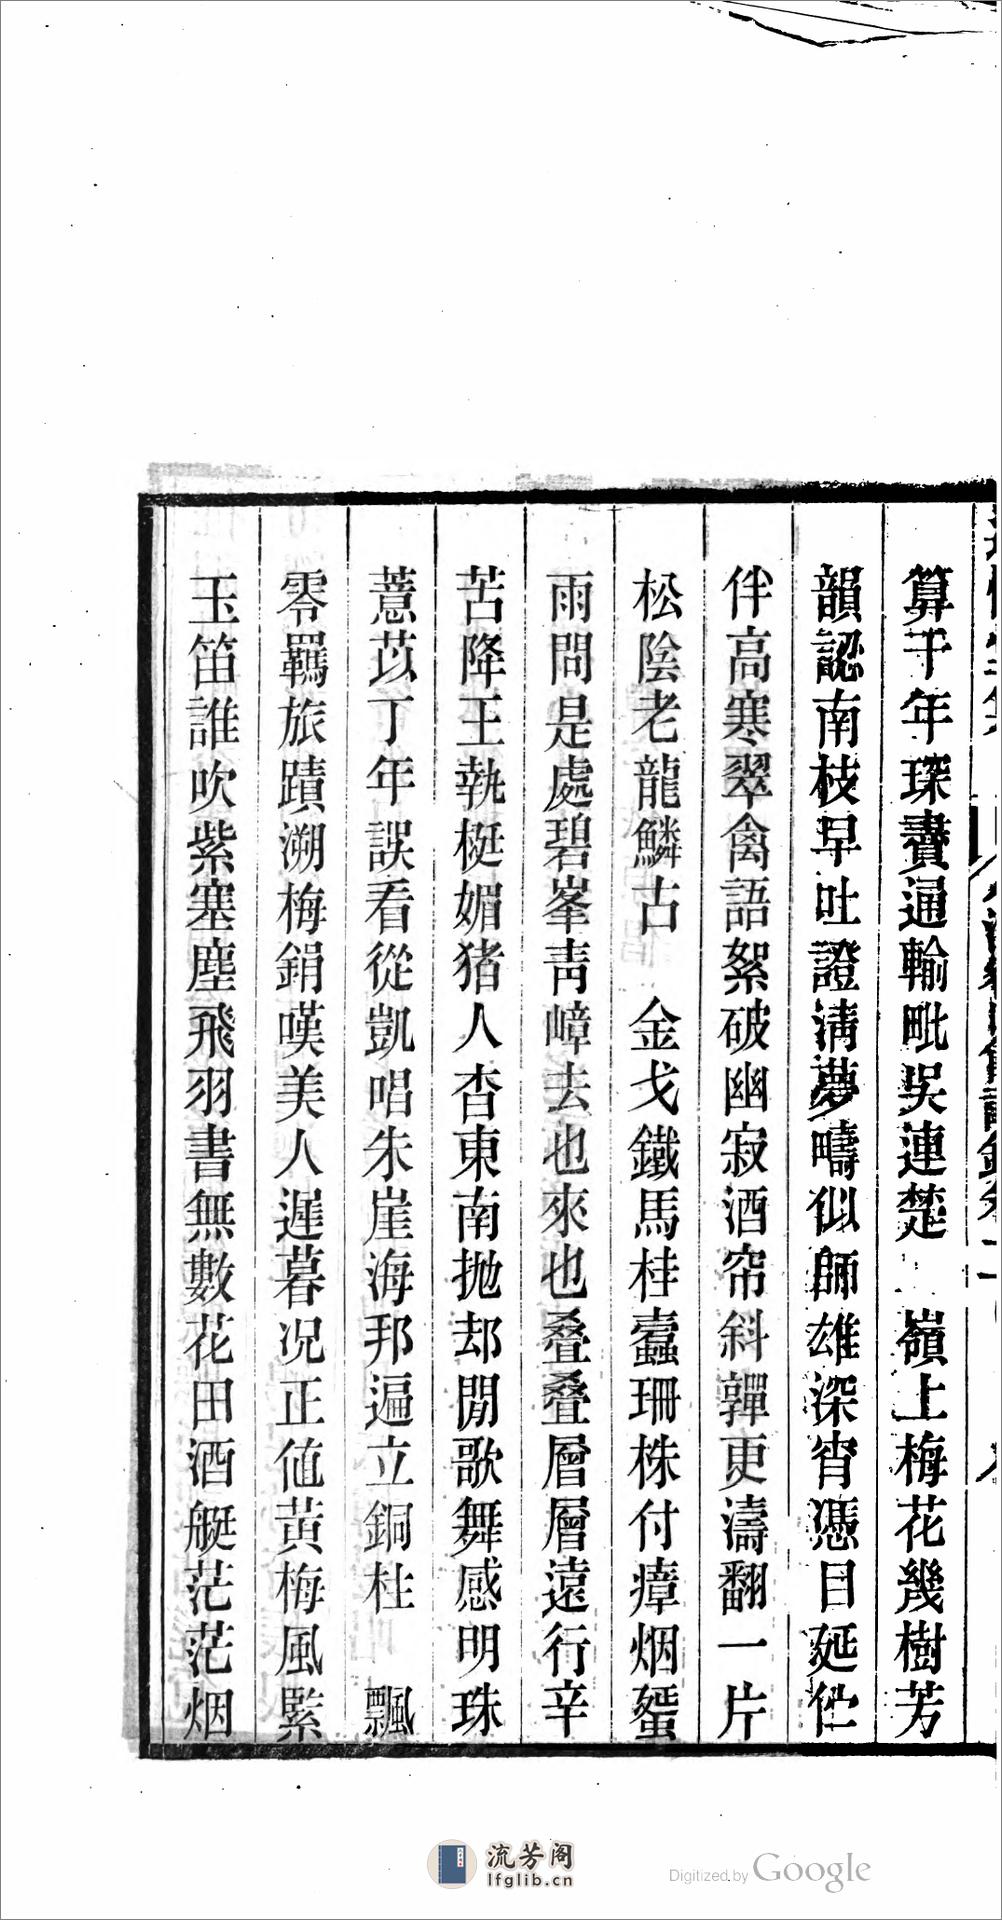 算千年琛賮通輸毗吳連楚　嶺上梅花幾樹芳
韻認南枝早吐證淸夢疇似師雄深宵憑目延伫
伴高寒翠禽語絮破幽寂酒帘斜嚲更濤翻一片
松陰老龍鱗古　金戈鐵馬桂蠹珊株付瘴烟蜑
雨問是處碧峯靑嶂去也來也叠叠層層遠行辛
苦降王執梃媚猪人杳東南抛却閒歌舞感明珠
薏苡丁年誤看從凱唱朱崖海邦遍立銅柱　飄
零羈旅蹟溯梅鋗嘆美人遲暮况正値黃梅風緊
玉笛誰吹紫塞塵飛羽書無數花田酒艇茫茫烟
流芳阁
lfglib.cn
Digitized by Google